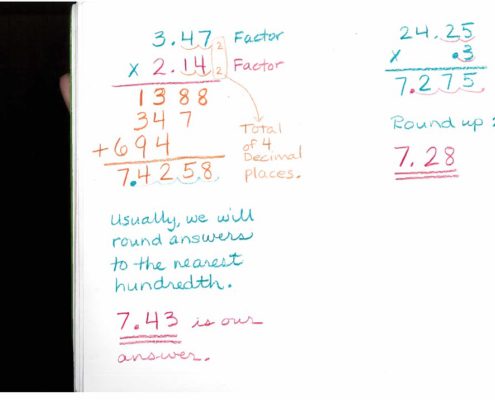 3.47 2 Factor
x 2.14 2 Factor
1388
347
+694
7.4258
Total
of 4
Decimal
places.
Usually, we will
round answers
to the nearest
hundredth.
7.43 is our
answer.
24.25
x .3
7.275
Round up :
7.28